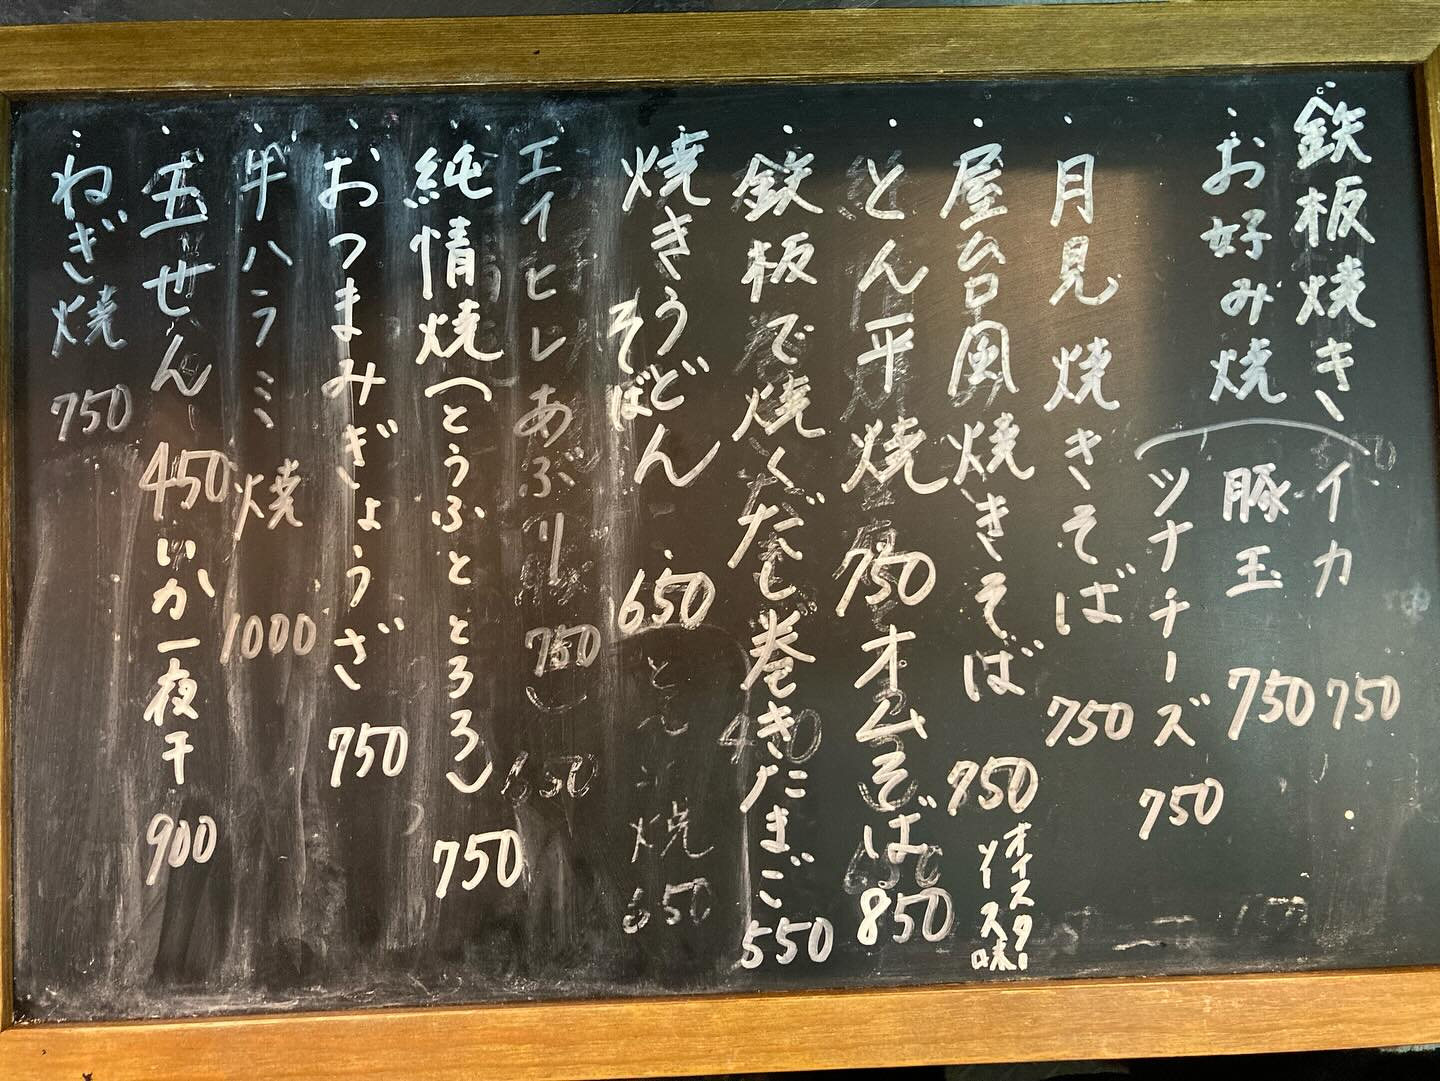 鉄板焼き
お好み焼
イカ 750
豚玉 750
ツナチーズ 750
月見焼きそば 750
屋台風焼きそば 750
オイスター
ソース味
とん平焼 750
オムそば 850
鉄板で焼くだし巻きたまご 550
焼きうどん
そば
650
とん平焼 650
エイヒレあぶり 750
650
純情焼(とうふととろろ) 750
おつまみぎょうざ 750
牛ハラミ焼 1000
玉せん 450
いか一夜干 900
ねぎ焼 750